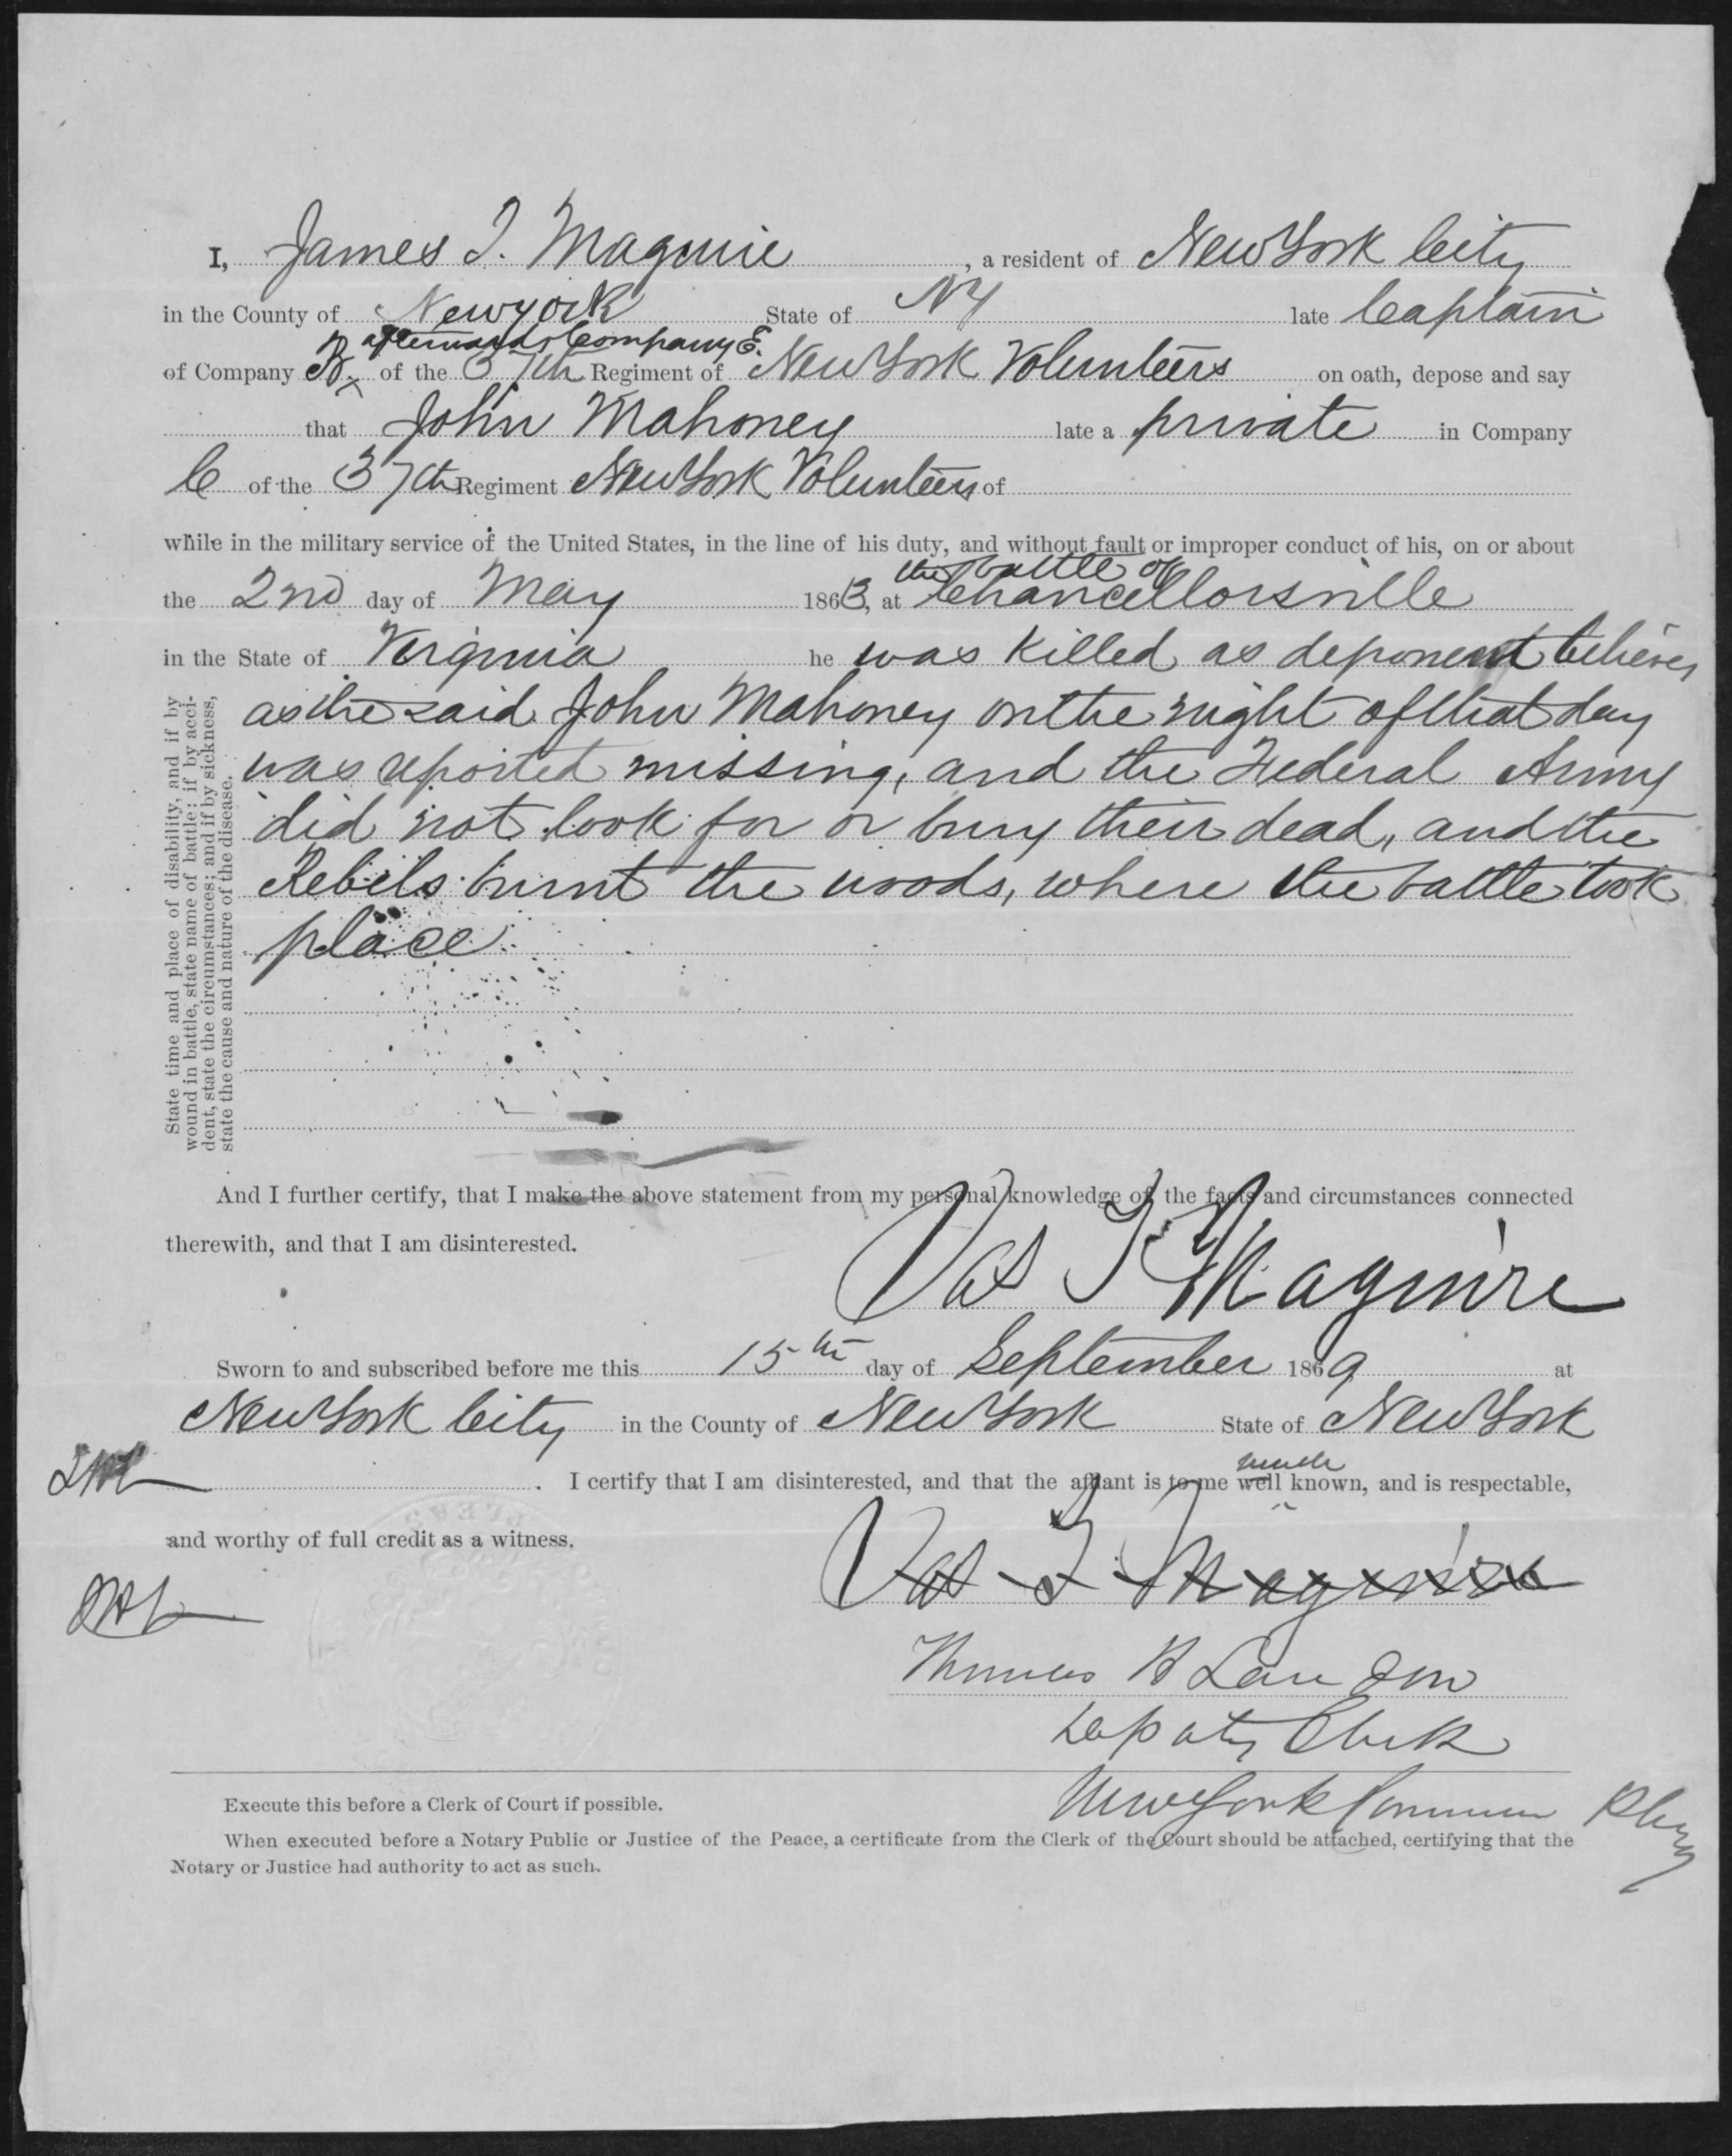 I, James T. Maguire, a resident of New York City
in the County of New York State of NY late Captain
B afterwards Company E.
of Company of the 37th Regiment of New York Volunteers on oath, depose and say
that John Mahoney late a private in Company
C of the 37th Regiment New York Volunteers of
while in the military service of the United States, in the line of his duty, and without fault or improper conduct of his, on or about
the battle of
the 2nd day of May 1863, at Chancellorsville
in the State of Virginia he was killed as deponent believes
as the said John Mahoney on the night of that day
was reported missing, and the Federal Army
did not look for or bury their dead, and the
Rebels burnt the woods, where the battle took
place
State time and place of disability, and if by
wound in battle, state name of battle; if by acci-
dent, state the circumstances; and if by sickness,
state the cause and nature of the disease.
And I further certify, that I make the above statement from my personal knowledge of the facts and circumstances connected
therewith, and that I am disinterested.
Jas T Maguire
Sworn to and subscribed before me this 15th day of September 1869 at
New York City in the County of New York State of New York
I certify that I am disinterested, and that the affiant is to me well known, and is respectable,
and worthy of full credit as a witness.
Jas T. Maguire
Thomas H Landon
Deputy Clerk
New York Common Pleas
Execute this before a Clerk of Court if possible.
When executed before a Notary Public or Justice of the Peace, a certificate from the Clerk of the Court should be attached, certifying that the
Notary or Justice had authority to act as such.